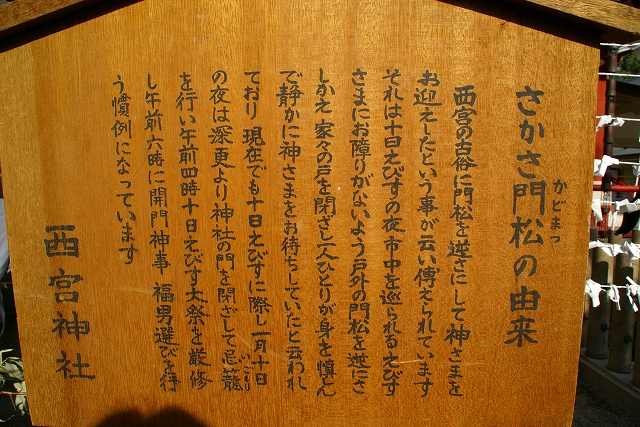 さかさ門松の由来
かどまつ
西宮の古俗に門松を逆さにして神さまを
お迎えしたという事が云い傳えられています
それは十日えびすの夜市中を巡られるえびす
さまにお障りがないよう戸外の門松を逆にさ
しかえ 家々の戸を閉ざし一人ひとりが身を慎しん
で静かに神さまをお待ちしていたと云われ
ており 現在でも十日えびすに際し一月十日
の夜は深更より神社の門を閉ざして忌籠
いごもり
を行い午前四時十日えびす大祭を厳修
し午前六時に開門神事 福男選びを行
う慣例になっています
西宮神社